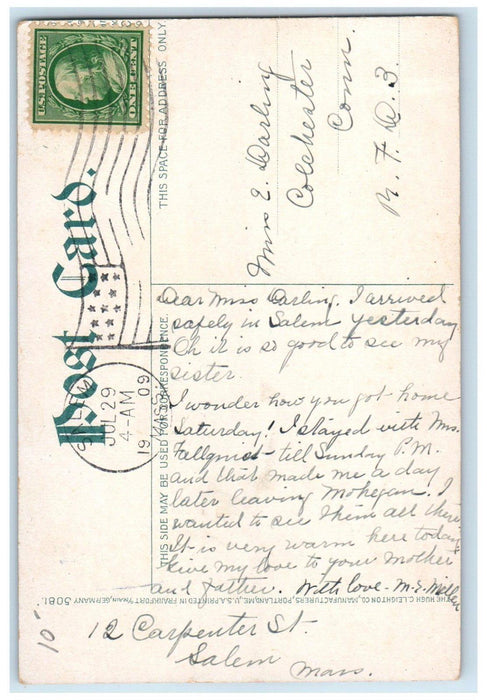 U.S. POSTAGE
ONE CENT
Post Card.
THIS SPACE FOR ADDRESS ONLY
SALEM
MASS.
JUL 29
4-AM
19 09
Miss E. Darling
Colchester
Conn.
R. F. D. 3
THIS SIDE MAY BE USED FOR CORRESPONDENCE.
Dear Miss Darling, I arrived
safely in Salem yesterday
Oh it is so good to see my
sister.
I wonder how you got home
Saturday! I stayed with Mrs.
till Sunday P.M.
and that made me a day
later leaving Mohegan. I
wanted to see them all there
It is very warm here today
Give my love to your Mother
and Father. With love - M. E.
THE HUGH C. LEIGHTON CO., MANUFACTURERS, PORTLAND, ME., U.S.A. PRINTED IN FRANKFORT MAIN, GERMANY 5081.
12 Carpenter St.
Salem
Mass.
10